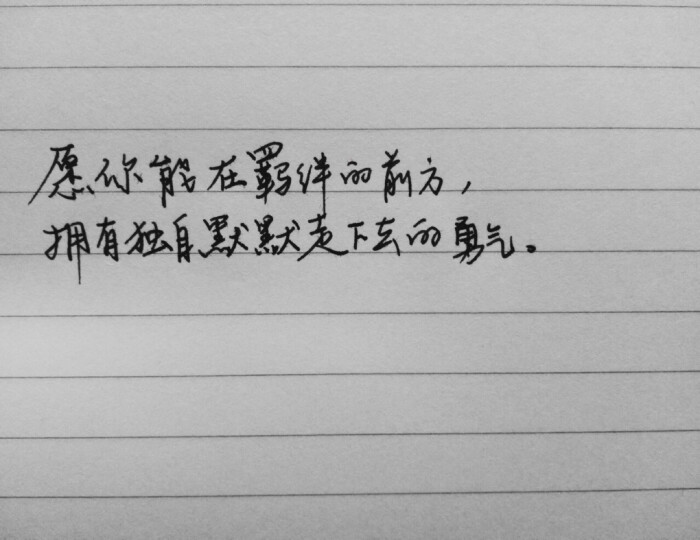 愿你能在羁绊的前方，
拥有独自默默走下去的勇气。